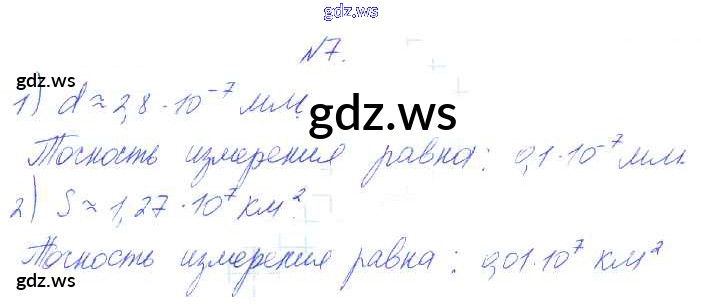 gdz.ws
№7.
gdz.ws
1) d ≈ 2,8 · 10⁻⁷ мм.
gdz.ws
Точность измерения равна: 0,1 · 10⁻⁷ мм.
gdz.ws
2) S ≈ 1,27 · 10⁷ км².
Точность измерения равна: 0,01 · 10⁷ км²
gdz.ws
gdz.ws